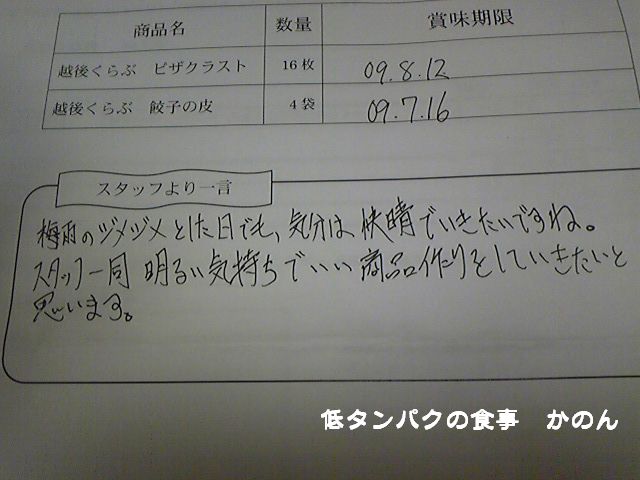 商品名 数量 賞味期限
越後くらぶ ピザクラスト 16枚 09.8.12
越後くらぶ 餃子の皮 4袋 09.7.16
スタッフより一言
梅雨のジメジメとした日でも、気分は快晴でいきたいですね。
スタッフ一同 明るい気持ちでいい商品作りをしていきたいと
思います。
低タンパクの食事 かのん